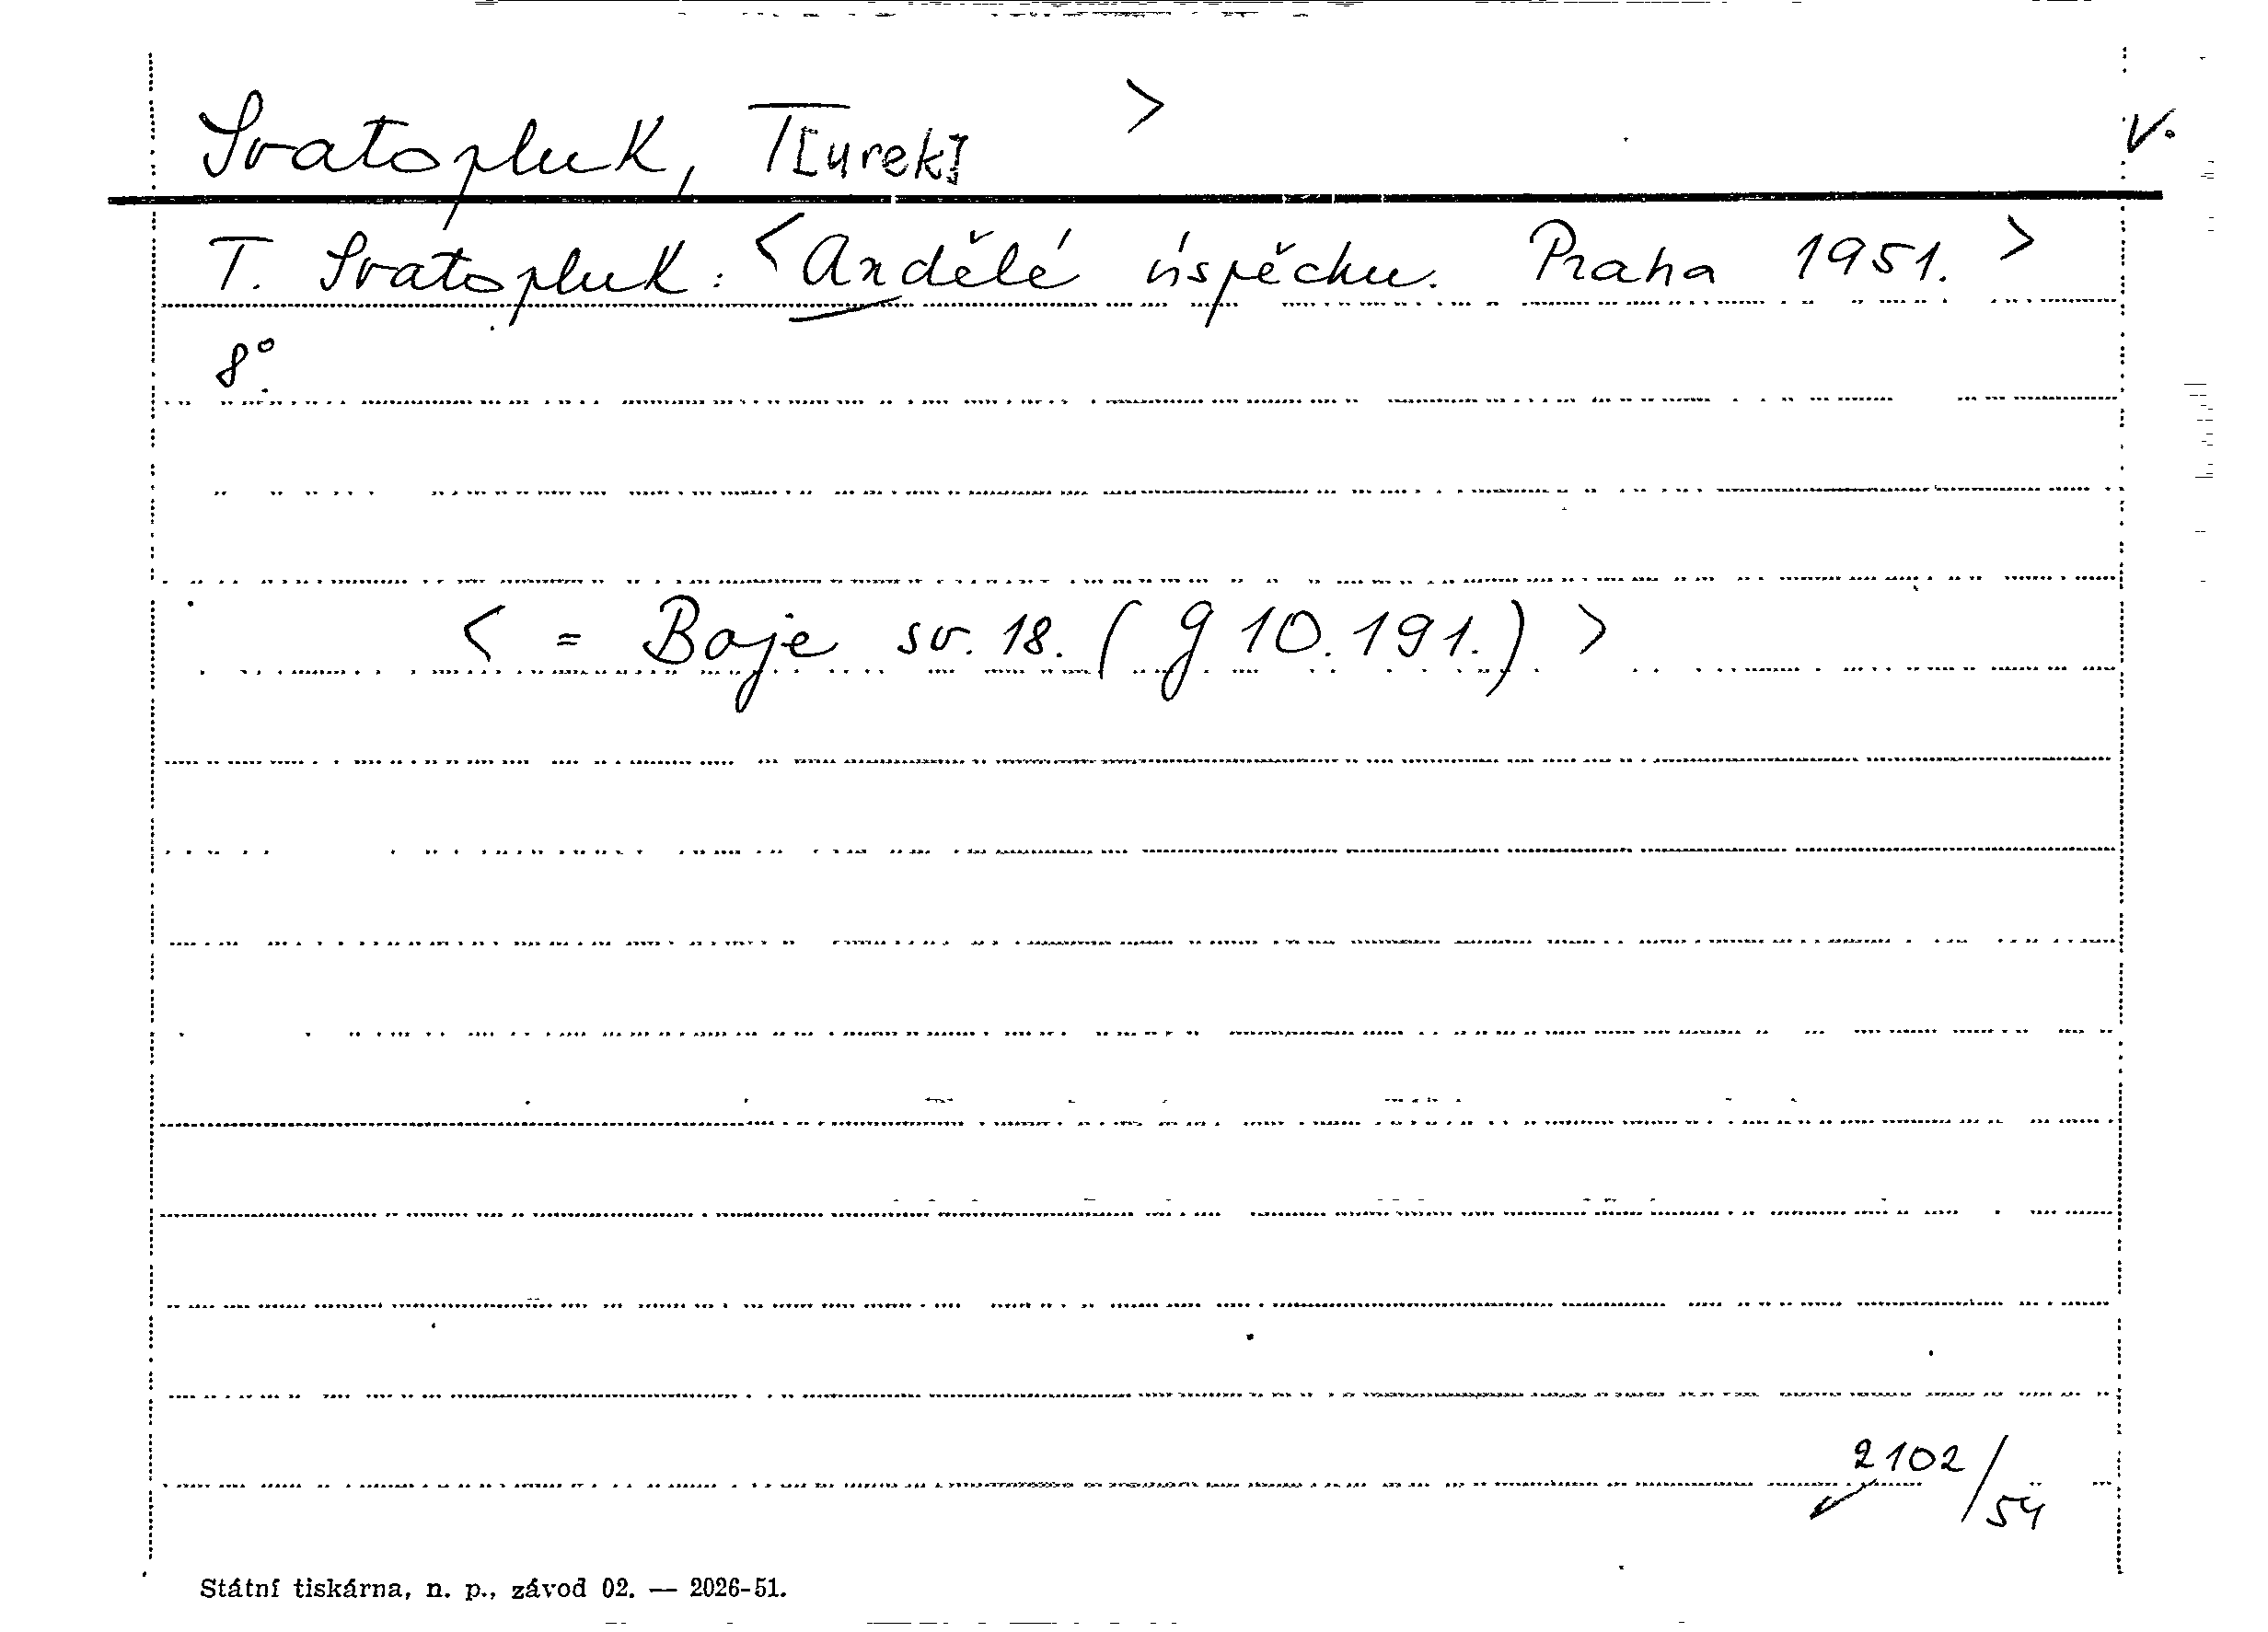 Svatopluk, T[urek] > V.
T. Svatopluk: <Andělé úspěchu. Praha 1951. >
8°.
< = Boje sv. 18. (g 10.191.) >
2102/54
Státní tiskárna, n. p., závod 02. — 2026-51.